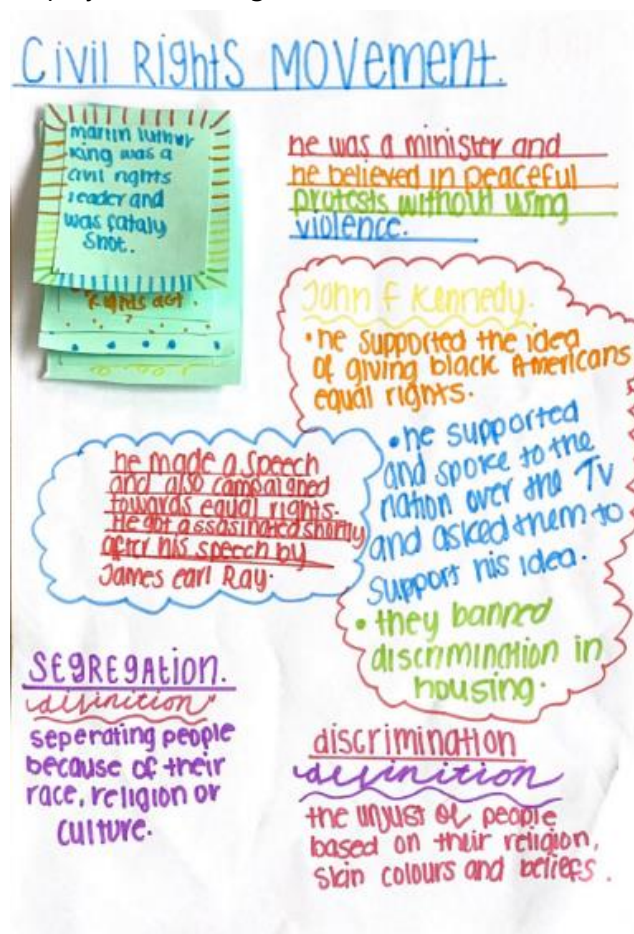 Civil Rights Movement.
martin luther
king was a
civil rights
leader and
was fataly
shot.
rights act.
he was a minister and
he believed in peaceful
protests without using
violence.
John f Kennedy.
• he supported the idea
of giving black Americans
equal rights.
• he supported
and spoke to the
nation over the TV
and asked them to
support his idea.
• they banned
discrimination in
housing.
he made a speech
and also campaigned
towards equal rights.
He got assasinated shortly
after his speech by
James earl Ray.
SEgREgATION.
definition
seperating people
because of their
race, religion or
culture.
discrimination
definition
the unjust of people
based on their religion,
skin colours and beliefs.